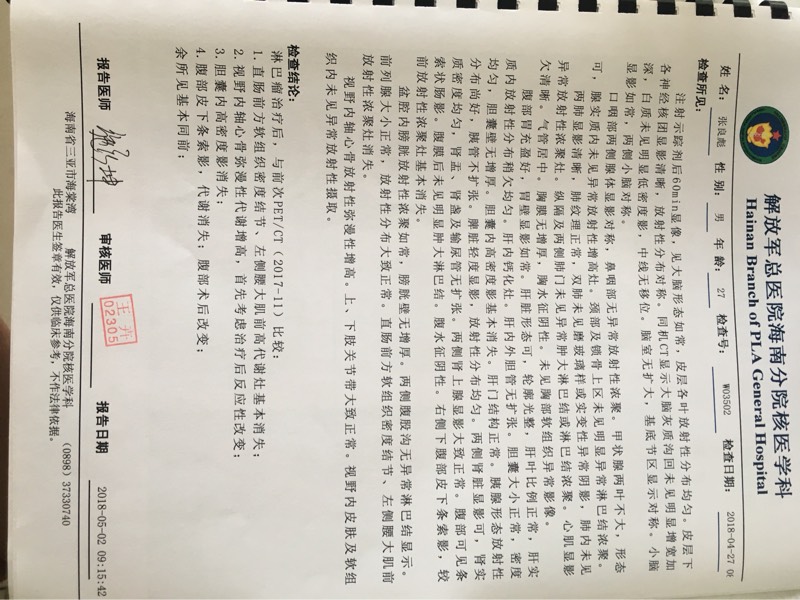 解放军总医院海南分院核医学科
Hainan Branch of PLA General Hospital
姓 名： 张良彪 性 别： 男 年 龄： 27 检查号： W03502 检查日期： 2018-04-27
检查所见：
注射示踪剂后60min显像，见大脑形态如常，皮层各叶放射性分布均匀。皮层下
各神经核团显影清晰，放射性分布对称。同机CT显示大脑灰质沟回未见明显增宽加
深，白质未见明显低密度影，中线无移位。脑室无扩大，基底节区显示对称。小脑
显影如常，两侧小脑对称。
口咽部两侧腺体显影对称，鼻咽部无异常放射性浓聚。甲状腺两叶不大，形态
可，腺实质内未见异常放射性增高灶。颈部及锁骨上区未见明显异常淋巴结浓聚。
两肺显影清晰，肺纹理正常，双肺未见磨玻璃样或实变性异常阴影，肺内未见
异常放射性浓聚灶。纵隔及两侧肺门未见异常肿大淋巴结或淋巴结浓聚。心肌显影
欠清晰。气管居中。胸膜无增厚，胸水征阴性。未见胸部软组织异常影像。
腹部胃充盈好，胃壁显影如常。肝脏形态可，轮廓光整，肝叶比例正常，肝实
质内放射性分布稍欠均匀。肝内钙化灶。肝内外胆管无扩张。胆囊大小正常，密度
均匀，胆囊壁无增厚。胆囊内高密度影基本消失。肝门结构正常。胰腺形态放射性
分布尚好，胰管不扩张。脾脏轻度显影，放射性分布均匀。两侧肾脏显影可，肾实
质密度均匀，肾盂、肾盏及输尿管无扩张。两侧肾上腺显影大致正常。腹部可见条
索状肠影。腹膜后未见明显肿大淋巴结。腹水征阴性。右侧下腹部皮下条索影，较
前放射性浓聚灶基本消失。
盆腔内膀胱放射性浓聚如常，膀胱壁无增厚。两侧腹股沟无异常淋巴结显示。
前列腺大小正常，放射性分布大致正常。直肠前方软组织密度结节、左侧腰大肌前
放射性浓聚灶消失。
视野内轴心骨放射性弥漫性增高。上、下肢关节带大致正常。视野内皮肤及软组
织内未见异常放射性摄取。
检查结论：
淋巴瘤治疗后，与前次PET/CT（2017-11）比较：
1. 直肠前方软组织密度结节、左侧腰大肌前高代谢灶基本消失；
2. 视野内轴心骨弥漫性代谢增高，首先考虑治疗后反应性改变；
3. 胆囊内高密度影消失；
4. 腹部皮下条索影，代谢消失；腹部术后改变；
余所见基本同前；
报告医师 审核医师 王光 02305 报告日期 2018-05-02 09:15:42
海南省三亚市海棠湾 解放军总医院海南分院核医学科 （0898）37330740
此报告医生签章有效，仅供临床参考，不作法律依据。